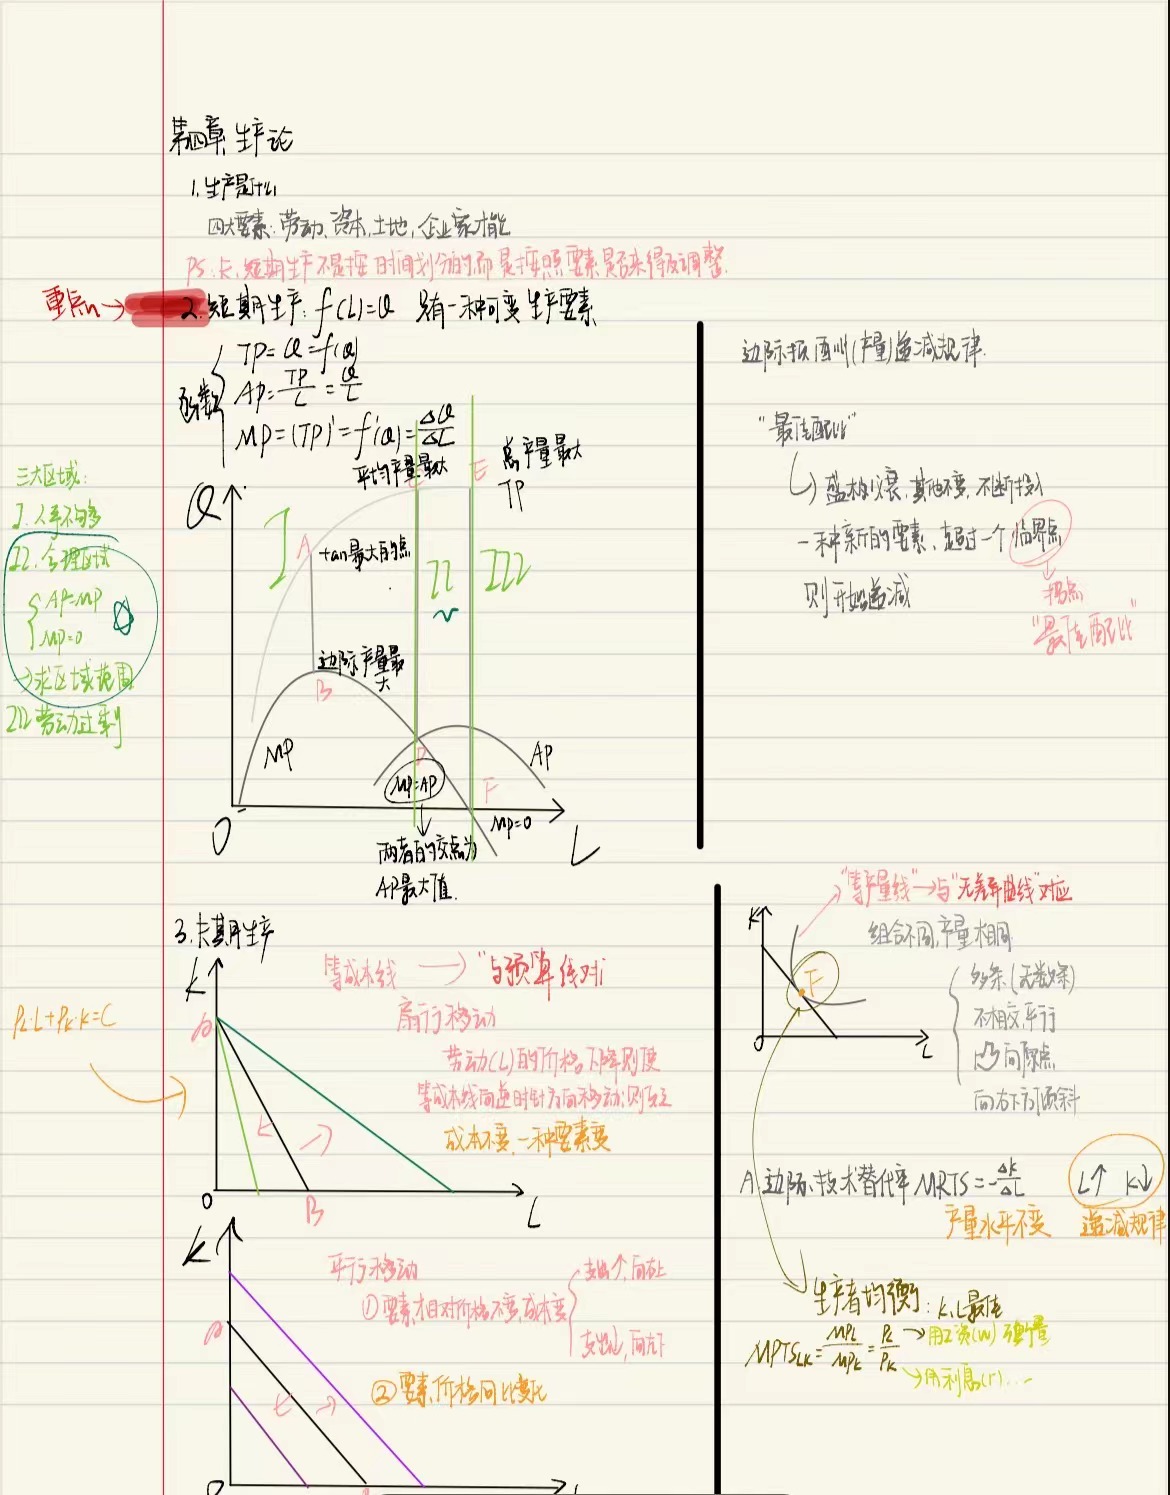 第四章 生产论
1.生产是什么
四大要素:劳动、资本,土地,企业家才能
PS:长、短期生产不是按时间划分的,而是按照要素是否来得及调整.
重点 →
2.短期生产: f(L)=Q 只有一种可变生产要素
TP=Q=f(Q)
AP=TP/L=Q/L
函数
MP=(TP)'=f'(Q)=ΔQ/ΔL
平均产量最大
总产量最大
TP
E
Q
三大区域:
I.人手不够
II.合理区域
AP=MP
MP=0
→求区域范围
III 劳动过剩
I
II
III
A
tan最大的点
边际产量最大
B
MP
AP
D
MP=AP
F
MP=0
O
L
两者的交点为
AP最大值.
边际报酬(产量)递减规律.
"最佳配比"
盛极必衰,其他不变,不断投入
一种新的要素,超过一个临界点
则开始递减
拐点
"最佳配比"
3.长期生产
K
等成本线 → "与预算线对
扇形移动
劳动(L)的价格下降则使
等成本线向逆时针方向移动;则反之
成本不变,一种要素变
PL·L+PK·K=C
A
O
B
L
K
平行移动
①要素相对价格不变,成本变
支出↑,向右上
支出↓,向左下
②要素价格同比变化
A
"等产量线"→与"无差异曲线"对应
K
组合不同,产量相同
F
多条(无数条)
不相交,平行
凸向原点
向右下方倾斜
O
L
A.边际技术替代率 MRTS=-ΔK/ΔL
L↑ K↓
产量水平不变
递减规律
生产者均衡: K,L最佳
MPTSLK=MPL/MPK=PL/PK
→用工资(W)衡量
→用利息(r)...